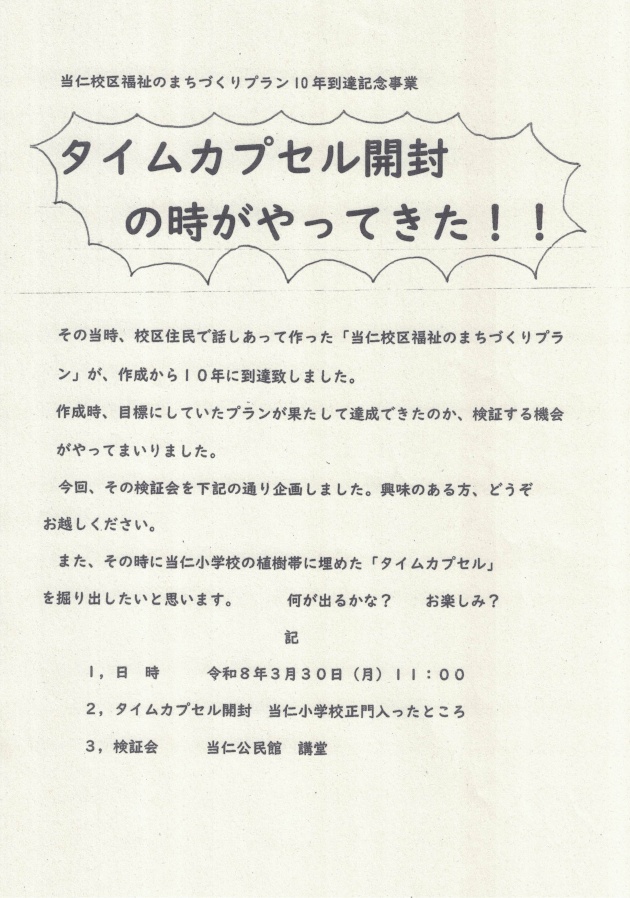 当仁校区福祉のまちづくりプラン10年到達記念事業
タイムカプセル開封
の時がやってきた！！
その当時、校区住民で話しあって作った「当仁校区福祉のまちづくりプラ
ン」が、作成から１０年に到達致しました。
作成時、目標にしていたプランが果たして達成できたのか、検証する機会
がやってまいりました。
今回、その検証会を下記の通り企画しました。興味のある方、どうぞ
お越しください。
また、その時に当仁小学校の植樹帯に埋めた「タイムカプセル」
を掘り出したいと思います。　　　何が出るかな？　　お楽しみ？
記
１，日　時　　　令和８年３月３０日（月）１１：００
２，タイムカプセル開封　当仁小学校正門入ったところ
３，検証会　　　当仁公民館　講堂